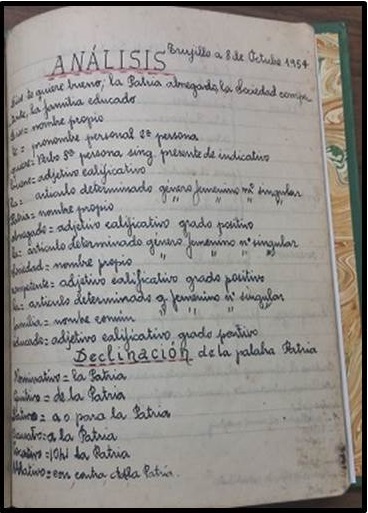 Trujillo a 8 de Octubre 1954
ANÁLISIS
Dios te quiere bueno, la Patria abnegado, la Sociedad compe
tente, la familia educado
Dios = nombre propio
te = pronombre personal 2ª persona
quiere = Verbo 3ª persona sing. presente de indicativo
bueno = adjetivo calificativo
la = artículo determinado género femenino nº singular
Patria = nombre propio " " "
abnegado = adjetivo calificativo grado positivo
la = artículo determinado género femenino nº singular
Sociedad = nombre propio " " "
competente = adjetivo calificativo grado positivo
la = artículo determinado g. femenino nº singular
familia = nombre común " " "
educado = adjetivo calificativo grado positivo
Declinación de la palabra Patria
Nominativo = la Patria
Genitivo = de la Patria
Dativo = a o para la Patria
Acusativo = a la Patria
Vocativo = ¡Oh! la Patria
Ablativo = con, contra, de la Patria.